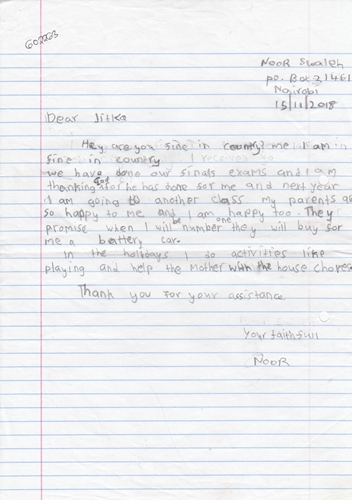 602263
Noor Swaleh
po. Box 31461
Nairobi
15/11/2018
Dear Jitka
Hey are you fine in country? me I am in
fine in country
we have done our finals exams and I am
thanking God for he has done for me and next year
I am going to another class my parents as
so happy to me and I am happy too. They
promise when I will be number one they will buy for
me a battery car.
In the holidays I do activities like
playing and help the Mother with the house chores
Thank you for your assistance
Your faithfull
NOOR